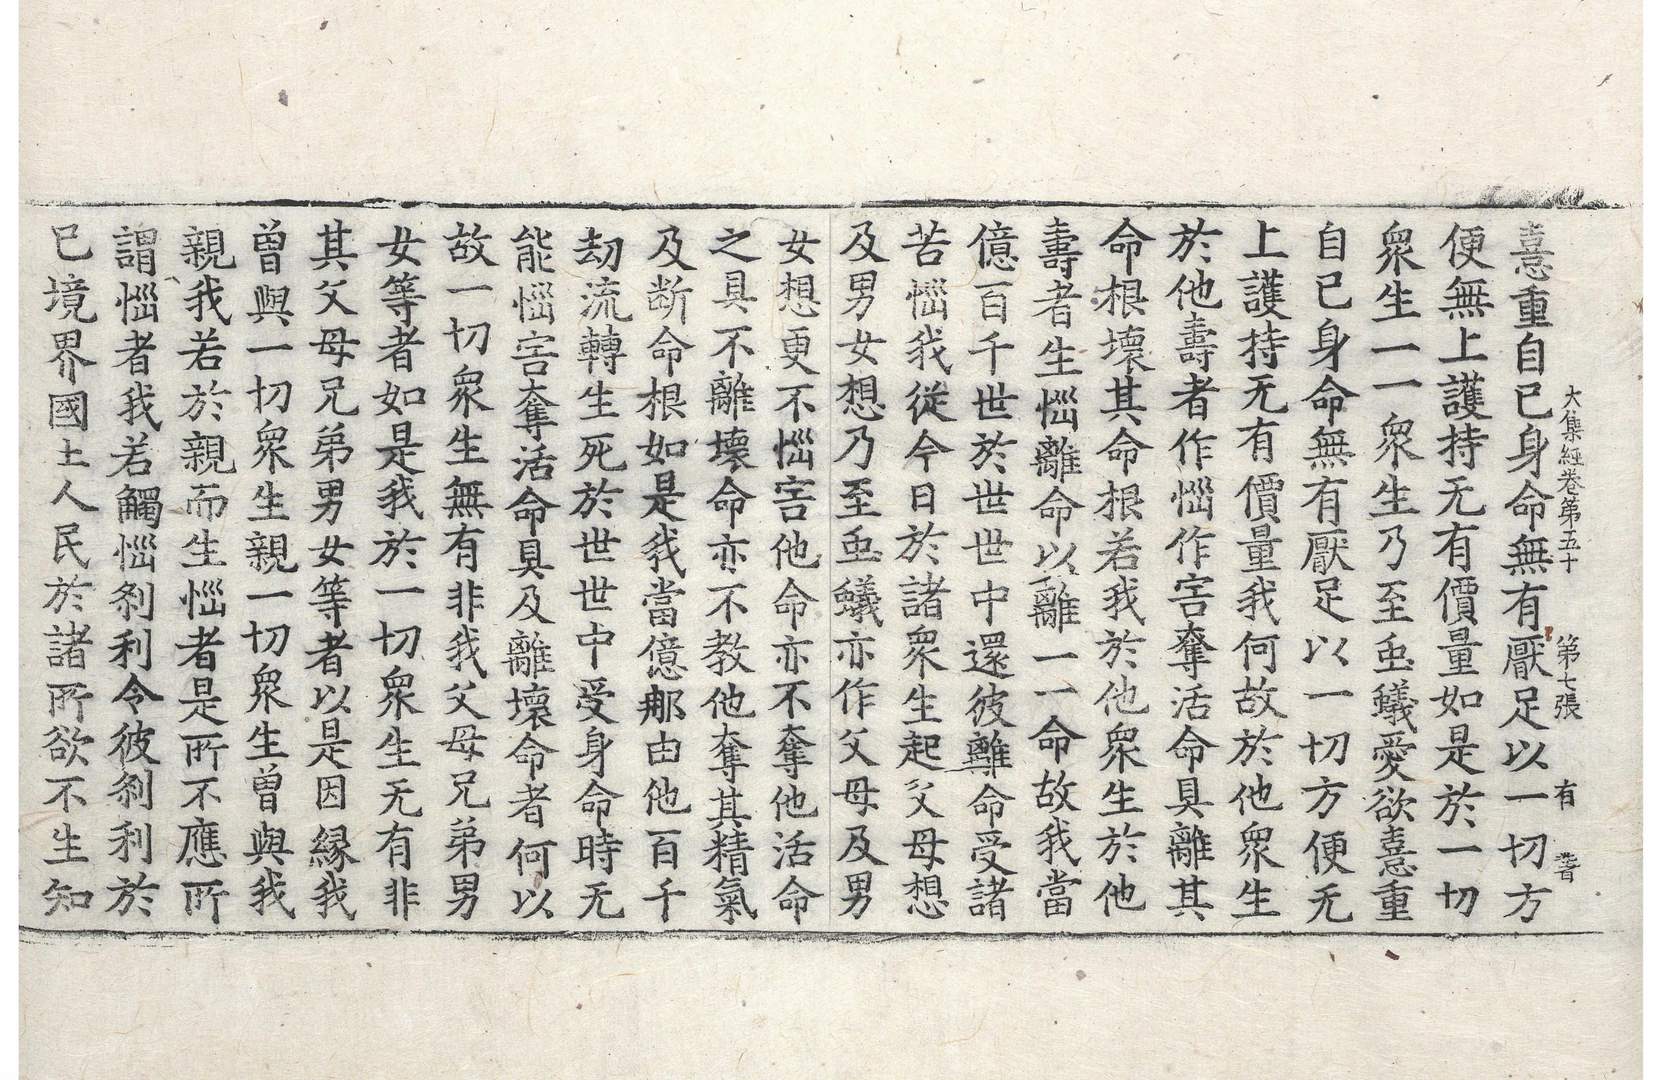 大集經卷第五十 第七張 有
憙重自已身命無有厭足以一切方
便無上護持无有價量如是於一切
衆生一一衆生乃至䖝蟻愛欲憙重
自已身命無有厭足以一切方便无
上護持无有價量我何故於他衆生
於他壽者作惱作害奪活命具離其
命根壞其命根若我於他衆生於他
壽者生惱離命以離一一命故我當
億百千世於世世中還彼離命受諸
苦惱我從今日於諸衆生起父母想
及男女想乃至䖝蟻亦作父母及男
女想更不惱害他命亦不奪他活命
之具不離壞命亦不教他奪其精氣
及断命根如是我當億那由他百千
劫流轉生死於世世中受身命時无
能惱害奪活命具及離壞命者何以
故一切衆生無有非我父母兄弟男
女等者如是我於一切衆生无有非
其父母兄弟男女等者以是因縁我
曽與一切衆生親一切衆生曽與我
親我若於親而生惱者是所不應所
謂惱者我若觸惱刹利令彼刹利於
已境界國土人民於諸所欲不生知